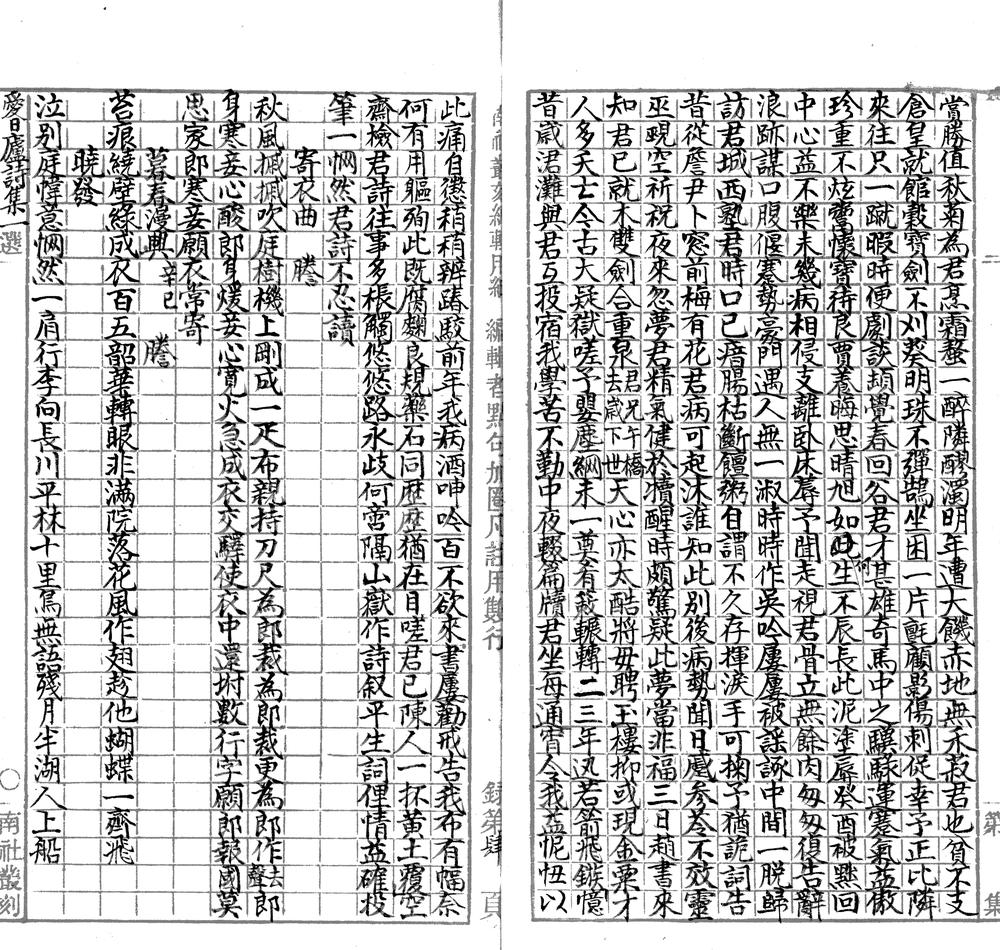 嘗勝值秋菊為君烹霜螯一醉隣醪濁明年遭大饑赤地無禾菽君也貧不支
倉皇就館穀寶劍不刈葵明珠不彈鵲坐困一片氈顧影傷刺促幸予正比隣
來往只一蹴暇時便劇談頡覺春回谷君才何甚雄奇馬中之驥騄運蹇氣益傲
珍重不炫鬻懷寶待良賈養晦思晴旭如此生不辰長此泥塗辱癸酉被黜回
中心益不樂未幾病相侵支離卧床蓐予聞走視君骨立無餘肉匆匆復告辭
浪跡謀口腹偃蹇勢豪門遇人無一淑時時作吳吟屢屢被謠諑中間一脫歸
訪君城西塾君時口已瘖腸枯斷饘粥自謂不久存揮淚手可掬予猶詭詞告
昔從詹尹卜窓前梅有花君病可起沐誰知此別後病勢聞日蹙参苓不效靈
巫覡空祈祝夜來忽夢君精氣健於犢醒時頗驚疑此夢當非福三日趙書來
知君已就木雙劍合重泉君兄午橋去歲下世天心亦太酷將毋聘玉樓抑或現金粟才
人多夭士今古大疑獄嗟予嬰塵網未一奠芻菽輾轉二三年迅若箭飛鏃憶
昔歲涒灘與君互投宿我學苦不勤中夜輟篇牘君坐每通宵令我益忸怩以
此痛自懲稍稍辨踳駁前年我病酒呻吟百不欲來書屢勸戒告我布有幅奈
何有用軀殉此既腐麴良規藥石同歷歷猶在目嗟君已陳人一抔黃土覆空
齋檢君詩往事多棖觸悠悠路水歧何啻隔山嶽作詩叙平生詞俚情益確投
筆一惘然君詩不忍讀
寄衣曲 謄
秋風摵摵吹庭樹機上剛成一疋布親持刀尺為郎裁為郎裁更為郎作去聲郎
身寒妾心酸郎身煖妾心寬火急成衣交驛使衣中還坿數行字願郎報國莫
思家郎寒妾願衣常寄
暮春漫興 辛巳 謄
苔痕繞壁綠成衣百五韶華轉眼非滿院落花風作翅趁他蝴蝶一齊飛
曉發
泣別庭幃意惘然一肩行李向長川平林十里鳥無語殘月半湖人上船
愛日廬詩集 選
〇 南社叢刻
第 集
編輯者點句加圈凡註用雙行
錄第肆 頁